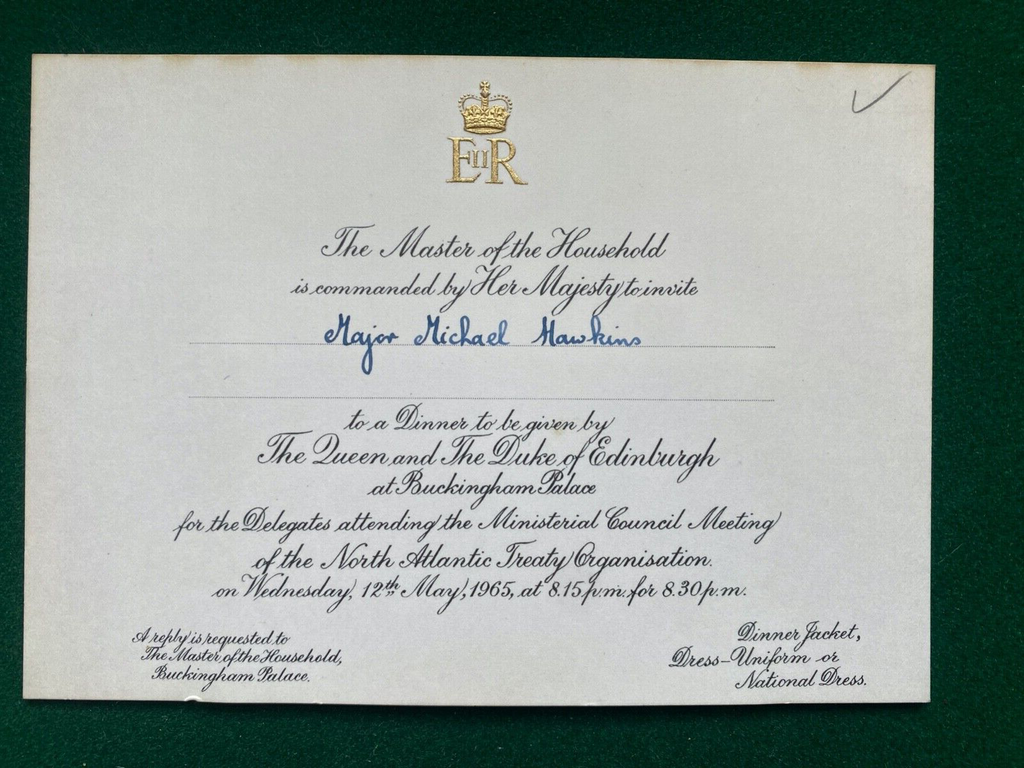 EIIR
The Master of the Household
is commanded by Her Majesty to invite
Major Michael Hawkins
to a Dinner to be given by
The Queen and The Duke of Edinburgh
at Buckingham Palace
for the Delegates attending the Ministerial Council Meeting
of the North Atlantic Treaty Organisation.
on Wednesday, 12th May, 1965, at 8.15 p.m. for 8.30 p.m.
A reply is requested to
The Master of the Household,
Buckingham Palace.
Dinner Jacket,
Dress-Uniform or
National Dress.